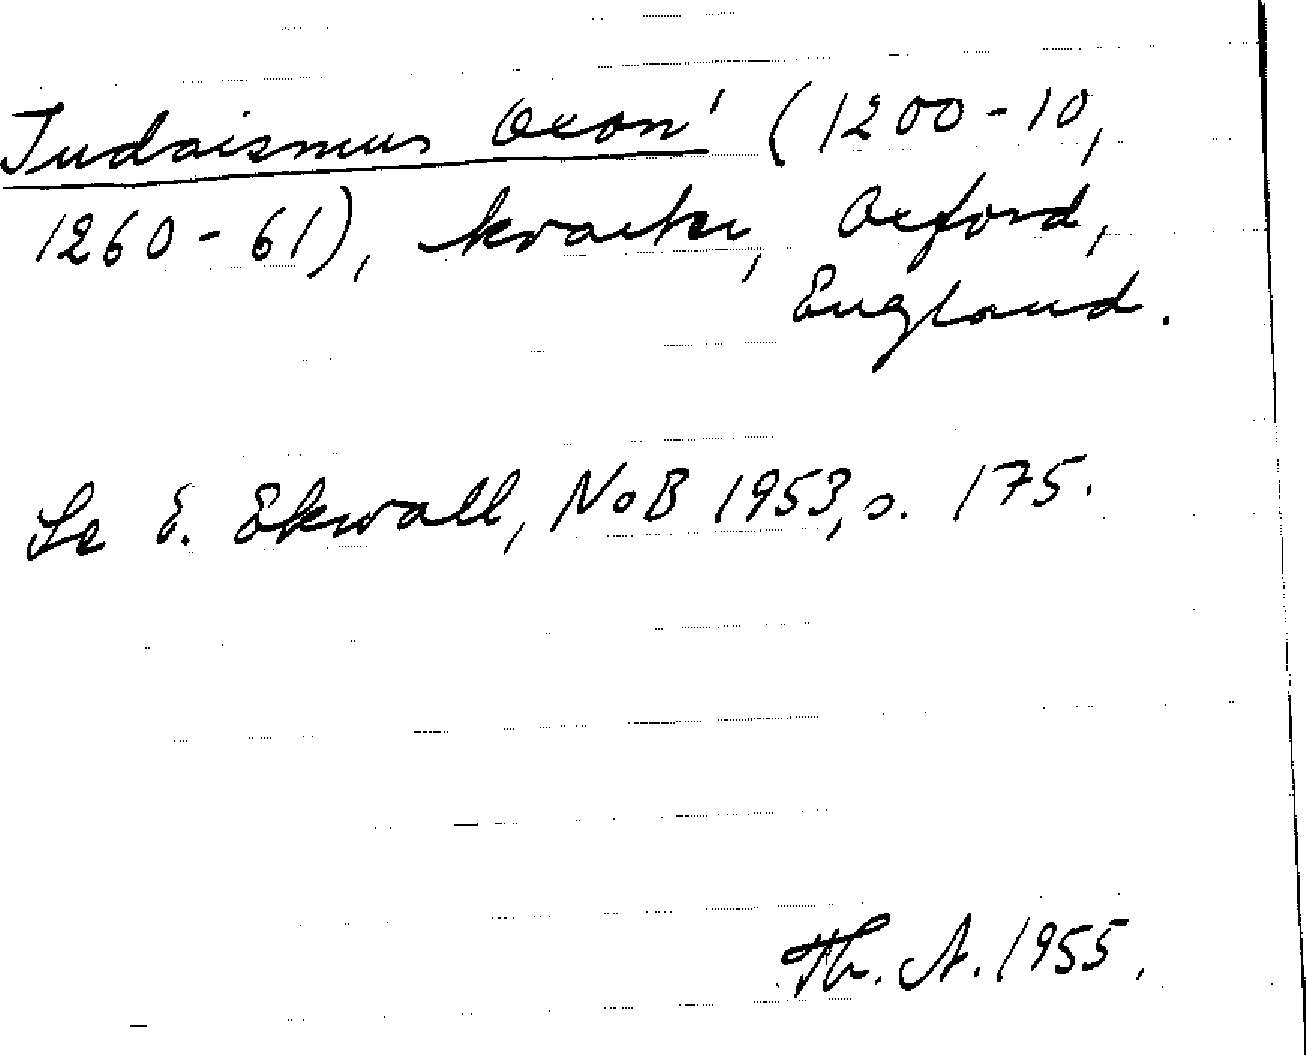 Judaismus Oxon' (1200-10,
1260-61), kvarter, Oxford,
England.
Se E. Ekwall, NoB 1953, s. 175.
Th. A. 1955.